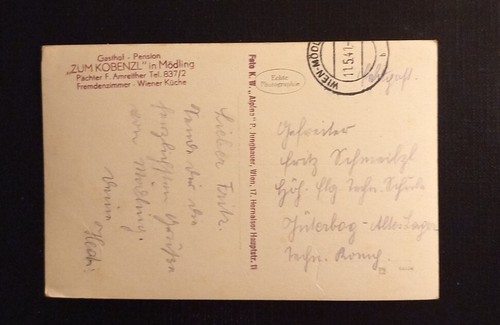 Gasthof - Pension
„ZUM KOBENZL" in Mödling
Pächter F. Anreither Tel. 837/2
Fremdenzimmer · Wiener Küche
Foto K. W. „Alpina" P. Jungbauer, Wien, 17. Hernalser Hauptstr. 11
Echte
Photographie
WIEN-MÖDL
11.5.41
b
Feldpost.
Lieber Fritz.
Sende dir die
herzlichsten Grüßen
von Mödling.
Gefreiter
Fritz Schmeitzl
Höh. flg techn. Schule
Jüterbog - Altes Lager
Techn. Komp.